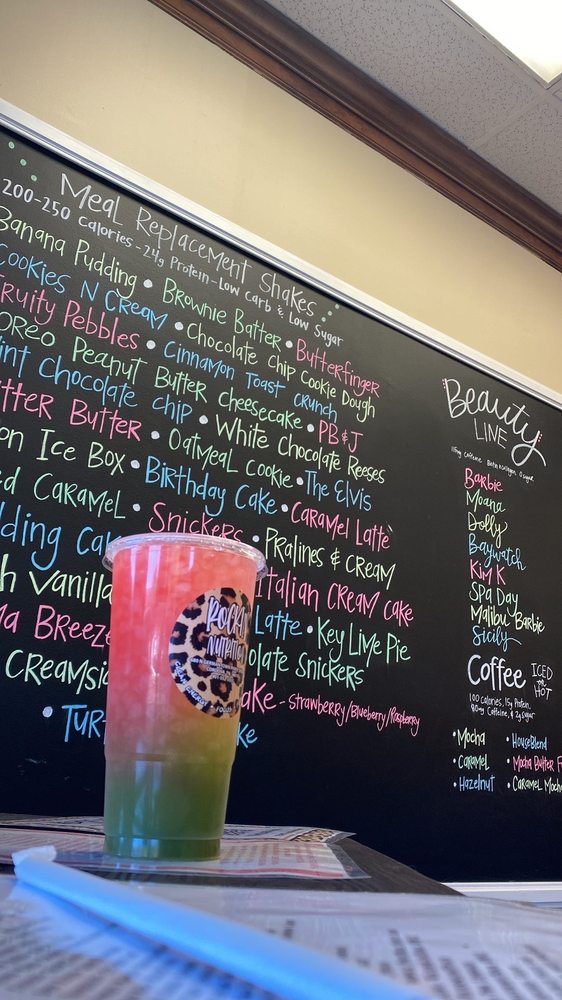 Meal Replacement Shakes
200-250 Calories - 24g Protein - Low Carb & Low Sugar
Banana Pudding • Brownie Batter • Butterfinger
Cookies N Cream • Chocolate Chip Cookie Dough
Fruity Pebbles • Cinnamon Toast Crunch
Oreo Peanut Butter Cheesecake • PB&J
int Chocolate Chip • White Chocolate Reeses
tter Butter • Oatmeal Cookie • The Elvis
on Ice Box • Birthday Cake • Caramel Latte
ed Caramel • Snickers • Pralines & Cream
dding Ca Italian Cream Cake
h Vanilla Latte • Key Lime Pie
Ma Breeze olate Snickers
Creamsi ake - Strawberry/Blueberry/Raspberry
• Tur ke
Beauty
Line
Barbie
Moana
Dolly
Baywatch
Kim K
Spa Day
Malibu Barbie
Sicily
Coffee Iced or Hot
100 Calories, 15g Protein,
80mg Caffeine, & 2g Sugar
• Mocha • House Blend
• Caramel • Mocha Butter F
• Hazelnut • Caramel Mocha
Rockin'
Nutrition